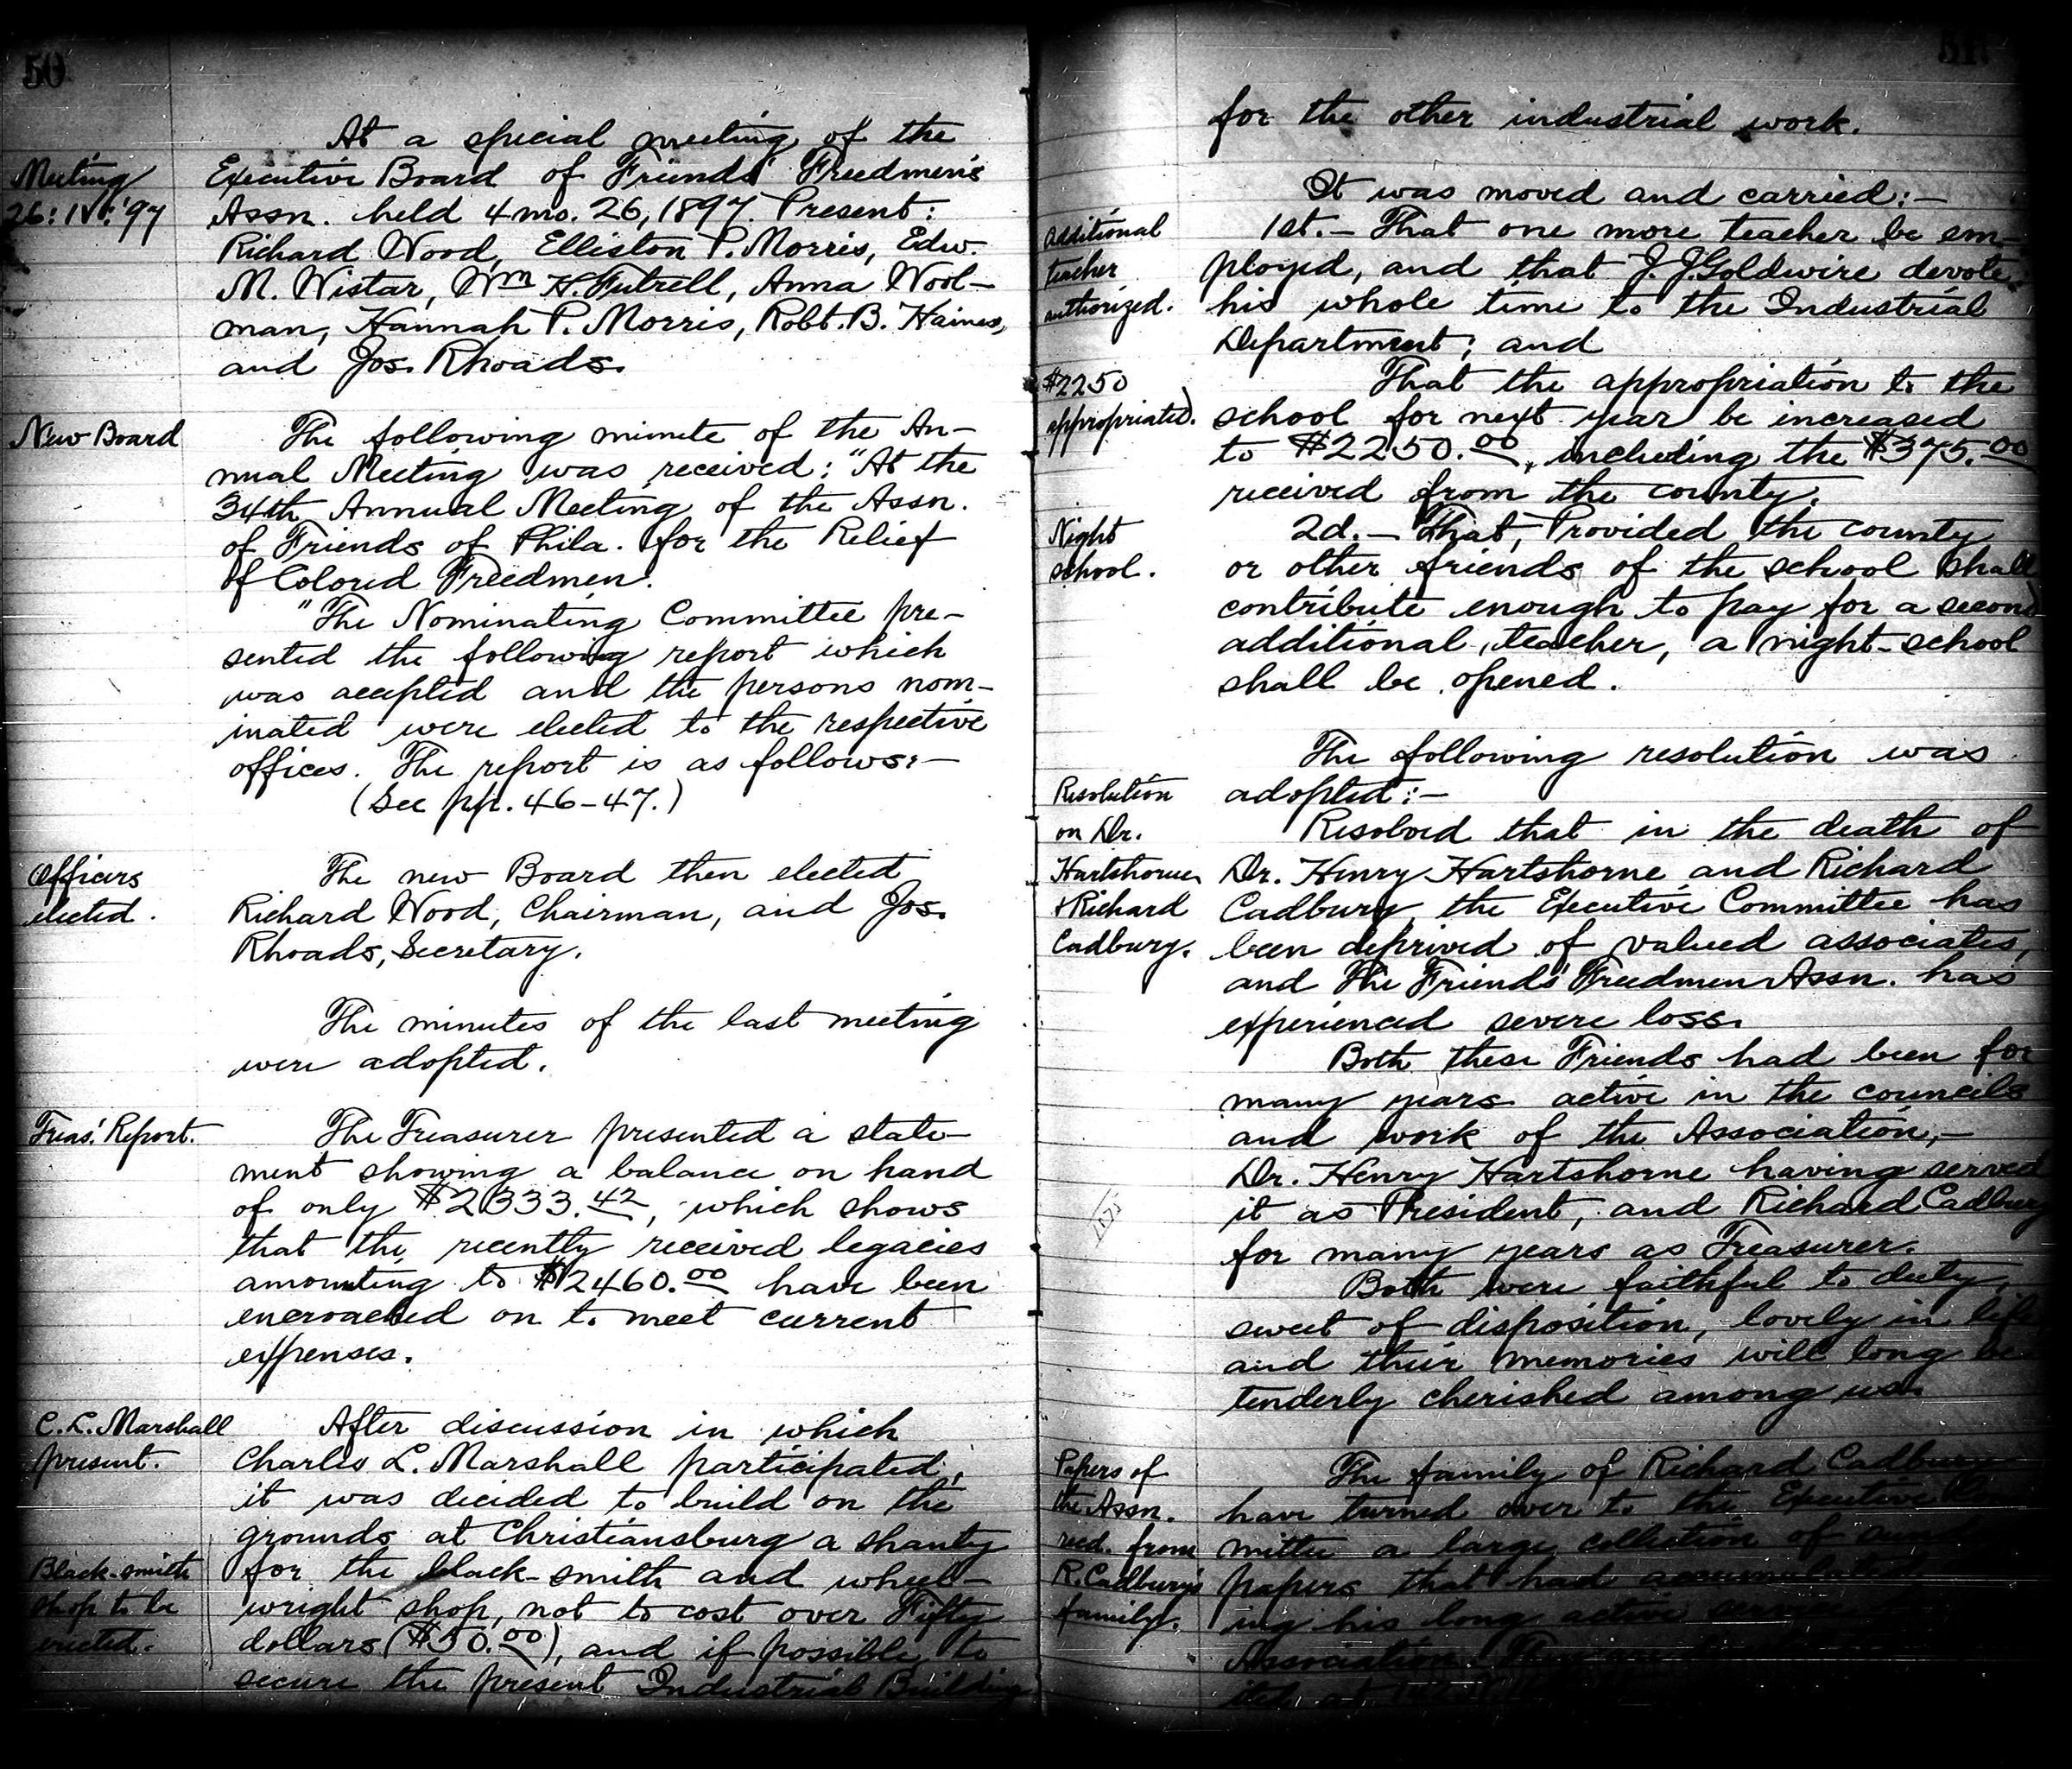 50
At a special meeting of the
Meeting
Executive Board of Friends' Freedmen's
26: IV: '97
Assn. held 4 mo. 26, 1897. Present:
Richard Wood, Elliston P. Morris, Edw.
M. Wistar, Wm H. Futrell, Anna Wool-
man, Hannah P. Morris, Robt. B. Haines,
and Jos. Rhoads.
New Board
The following minute of the An-
nual Meeting was received: "At the
34th Annual Meeting of the Assn.
of Friends of Phila. for the Relief
of Colored Freedmen.
"The Nominating Committee pre-
sented the following report which
was accepted and the persons nom-
inated were elected to the respective
offices. The report is as follows:-
(See pp. 46-47.)
Officers
elected.
The new Board then elected
Richard Wood, Chairman, and Jos.
Rhoads, Secretary.
The minutes of the last meeting
were adopted.
Treas. Report.
The Treasurer presented a state-
ment showing a balance on hand
of only $2333.42, which shows
that the recently received legacies
amounting to $2460.00 have been
encroached on to meet current
expenses.
C. L. Marshall
present.
After discussion in which
Charles L. Marshall participated,
it was decided to build on the
grounds at Christiansburg a shanty
Black-smith
shop to be
erected.
for the black-smith and wheel-
wright shop, not to cost over Fifty
dollars ($50.00), and if possible to
secure the present Industrial Building
51
for the other industrial work.
It was moved and carried:-
Additional
teacher
authorized.
1st.- That one more teacher be em-
ployed, and that J. J. Goldwire devote
his whole time to the Industrial
Department; and
$2250
appropriated.
That the appropriation to the
school for next year be increased
to $2250.00, including the $375.00
received from the county.
Night
school.
2d.- That, Provided the county
or other friends of the school shall
contribute enough to pay for a second
additional teacher, a night-school
shall be opened.
The following resolution was
Resolution
on Dr.
Hartshorne
& Richard
Cadbury.
adopted:-
Resolved that in the death of
Dr. Henry Hartshorne and Richard
Cadbury, the Executive Committee has
been deprived of valued associates,
and The Friends' Freedmen Assn. has
experienced severe loss.
Both these Friends had been for
many years active in the councils
and work of the Association,-
Dr. Henry Hartshorne having served
it as President, and Richard Cadbury
for many years as Treasurer.
Both were faithful to duty,
sweet of disposition, lovely in life
and their memories will long be
tenderly cherished among us.
Papers of
the Assn.
recd. from
R. Cadbury's
family.
The family of Richard Cadbury
have turned over to the Executive
mittee a large collection of
papers that had accumulated
ing his long active
Association. They are